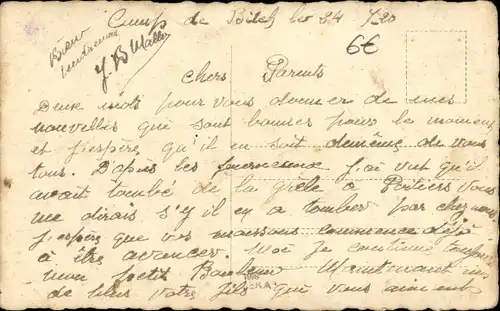 Camp de Bitch le 24 /7 20
6€
Bien
J. B Mallez
Chers Parents
Deux mots pour vous donner de mes
nouvelles qui sont bonnes pour le moment
et j'espère qu'il en soit demême de vous
tous. D'après les journeaux j'ai vut qu'il
avait tombé de la grêle a Poitiers vous
me dirais s'y il en a tomber par chez nous
j'espère que vos moissons commence déjà
a être avancer. Moi je continue toujours
mon petit Bonheur Maintenant
de plus votre fils qui vous aiment